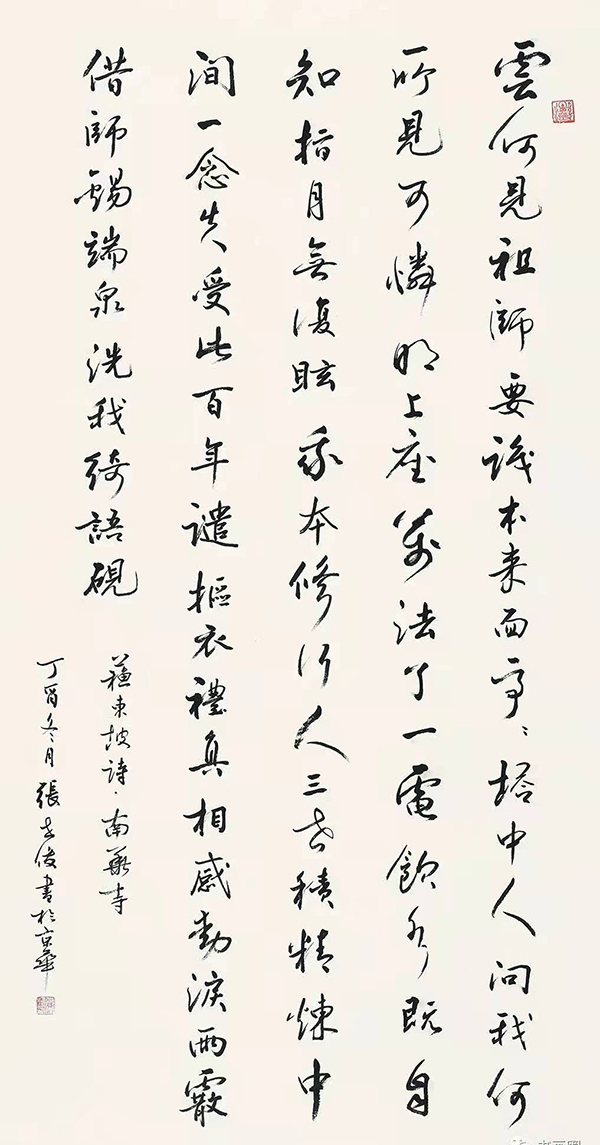 雲何見祖師要識本来面亭〻塔中人问我何
所見可憐明上座萬法了一電飲水既自
知指月無復眩我本修行人三世積精煉中
间一念失受此百年譴摳衣禮真相感動淚雨霰
借師錫端泉洗我綺語硯
蘇東坡詩·南華寺
丁酉冬月張志俊書於京華